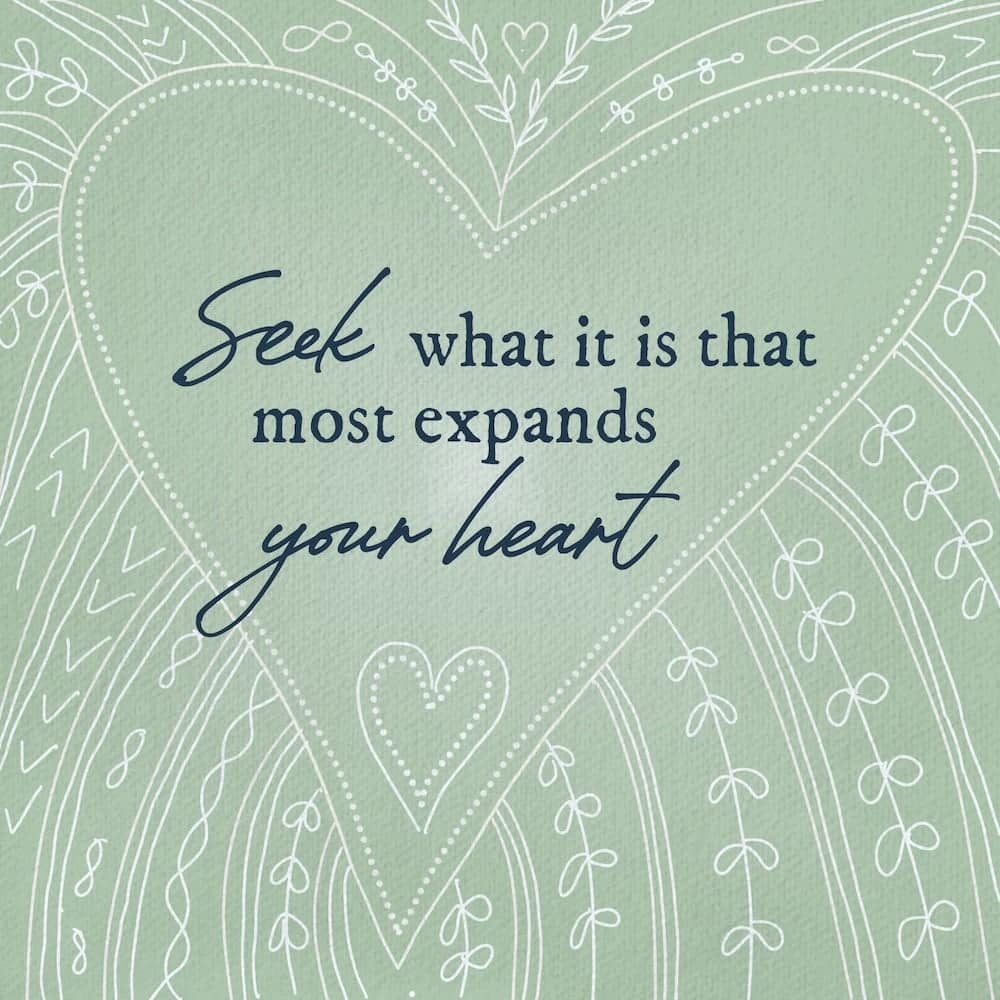 Seek what it is that
most expands
your heart